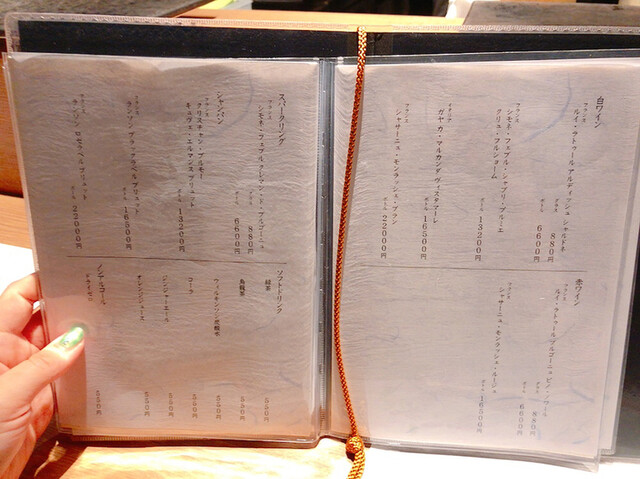 白ワイン
フランス
ルイ・ラトゥール アルディッシュ シャルドネ
グラス 880円
ボトル 6600円
フランス
シモネ・フェブル・シャブリ・プルミエ
クリュ・フルショーム
ボトル 13200円
イタリア
ガヤ カ・マルカンダ ヴィスタマーレ
ボトル 16500円
フランス
シャサーニュ・モンラッシェ・ブラン
ボトル 22000円
赤ワイン
フランス
ルイ・ラトゥール ブルゴーニュ ピノ・ノワール
グラス 880円
ボトル 6600円
フランス
シャサーニュ・モンラッシェ・ルージュ
ボトル 16500円
スパークリング
フランス
シモネ・フェブル クレマン・ド・ブルゴーニュ
グラス 880円
ボトル 6600円
シャンパン
フランス
クリスチャン・ブルモー
キュヴェ・エルマンス ブリュット
ボトル 13200円
フランス
ランソン ブラックラベル ブリュット
ボトル 16500円
フランス
ランソン ロゼラベル ブリュット
ボトル 22000円
ソフトドリンク
緑茶 550円
烏龍茶 550円
ウィルキンソン炭酸水 550円
コーラ 550円
ジンジャーエール 550円
オレンジジュース 550円
ノンアルコール
ドライゼロ 550円